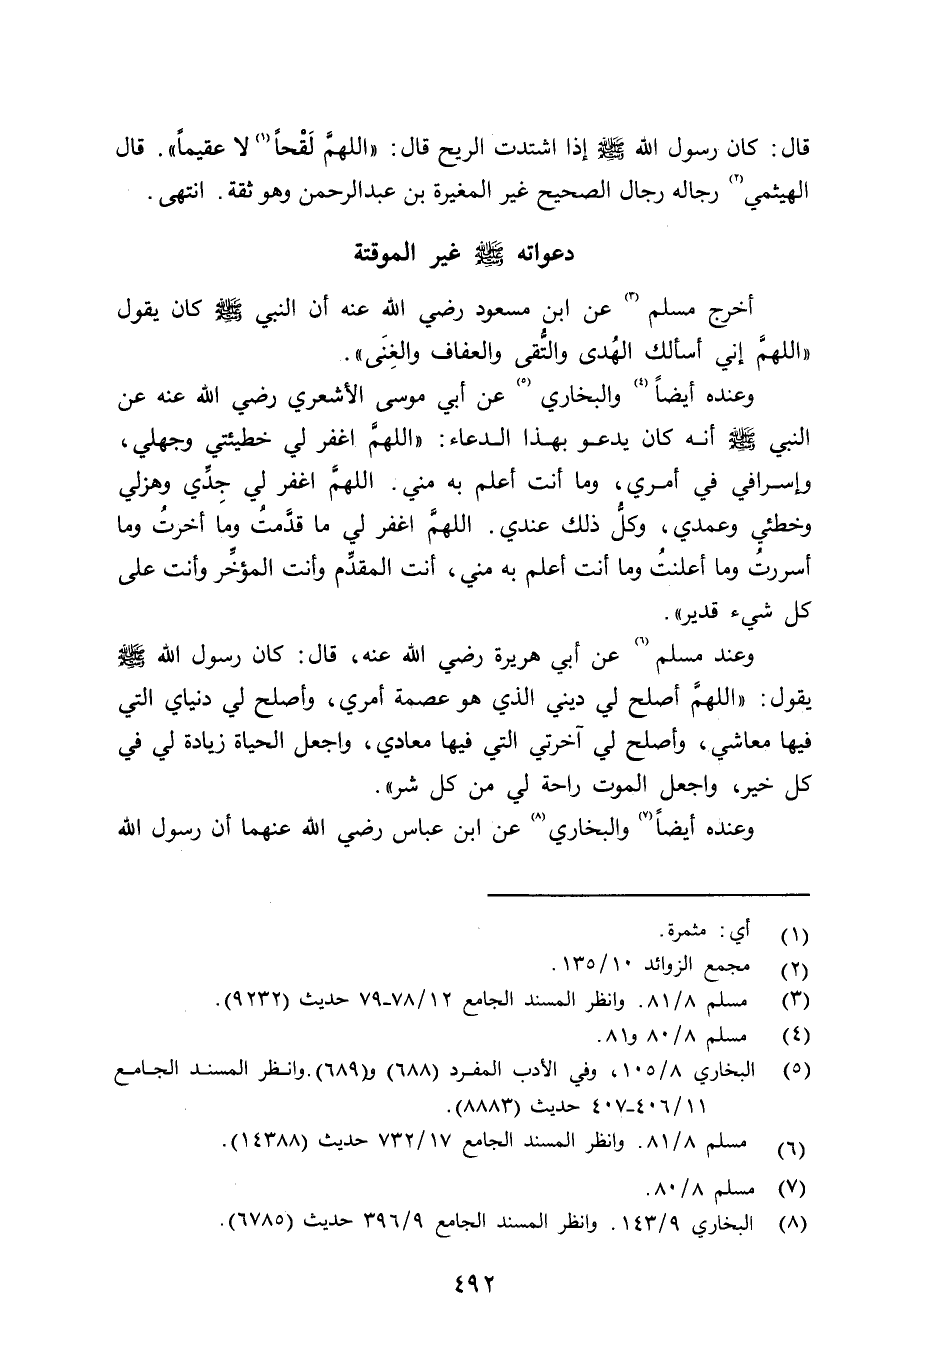 قال: كان رسول الله ﷺ إذا اشتدت الريح قال: «اللهمَّ لَقْحاً(١) لا عقيماً». قال
الهيثمي(٢) رجاله رجال الصحيح غير المغيرة بن عبدالرحمن وهو ثقة. انتهى.
دعواته ﷺ غير الموقتة
أخرج مسلم(٣) عن ابن مسعود رضي الله عنه أن النبي ﷺ كان يقول
«اللهمَّ إني أسألك الهُدى والتُّقى والعفاف والغِنَى».
وعنده أيضاً(٤) والبخاري(٥) عن أبي موسى الأشعري رضي الله عنه عن
النبي ﷺ أنه كان يدعو بهذا الدعاء: «اللهمَّ اغفر لي خطيئتي وجهلي،
وإسرافي في أمري، وما أنت أعلم به مني. اللهمَّ اغفر لي جِدِّي وهزلي
وخطئي وعمدي، وكلُّ ذلك عندي. اللهمَّ اغفر لي ما قدَّمتُ وما أخرتُ وما
أسررتُ وما أعلنتُ وما أنت أعلم به مني، أنت المقدِّم وأنت المؤخِّر وأنت على
كل شيء قدير».
وعند مسلم(٦) عن أبي هريرة رضي الله عنه، قال: كان رسول الله ﷺ
يقول: «اللهمَّ أصلح لي ديني الذي هو عصمة أمري، وأصلح لي دنياي التي
فيها معاشي، وأصلح لي آخرتي التي فيها معادي، واجعل الحياة زيادة لي في
كل خير، واجعل الموت راحة لي من كل شر».
وعنده أيضاً(٧) والبخاري(٨) عن ابن عباس رضي الله عنهما أن رسول الله
(١) أي: مثمرة.
(٢) مجمع الزوائد ١٣٥/١٠.
(٣) مسلم ٨١/٨. وانظر المسند الجامع ٧٨/١٢-٧٩ حديث (٩٢٣٢).
(٤) مسلم ٨٠/٨ و٨١.
(٥) البخاري ١٠٥/٨، وفي الأدب المفرد (٦٨٨) و(٦٨٩).وانظر المسند الجامع
٤٠٦/١١-٤٠٧ حديث (٨٨٨٣).
(٦) مسلم ٨١/٨. وانظر المسند الجامع ٧٣٢/١٧ حديث (١٤٣٨٨).
(٧) مسلم ٨٠/٨.
(٨) البخاري ١٤٣/٩. وانظر المسند الجامع ٣٩٦/٩ حديث (٦٧٨٥).
٤٩٢